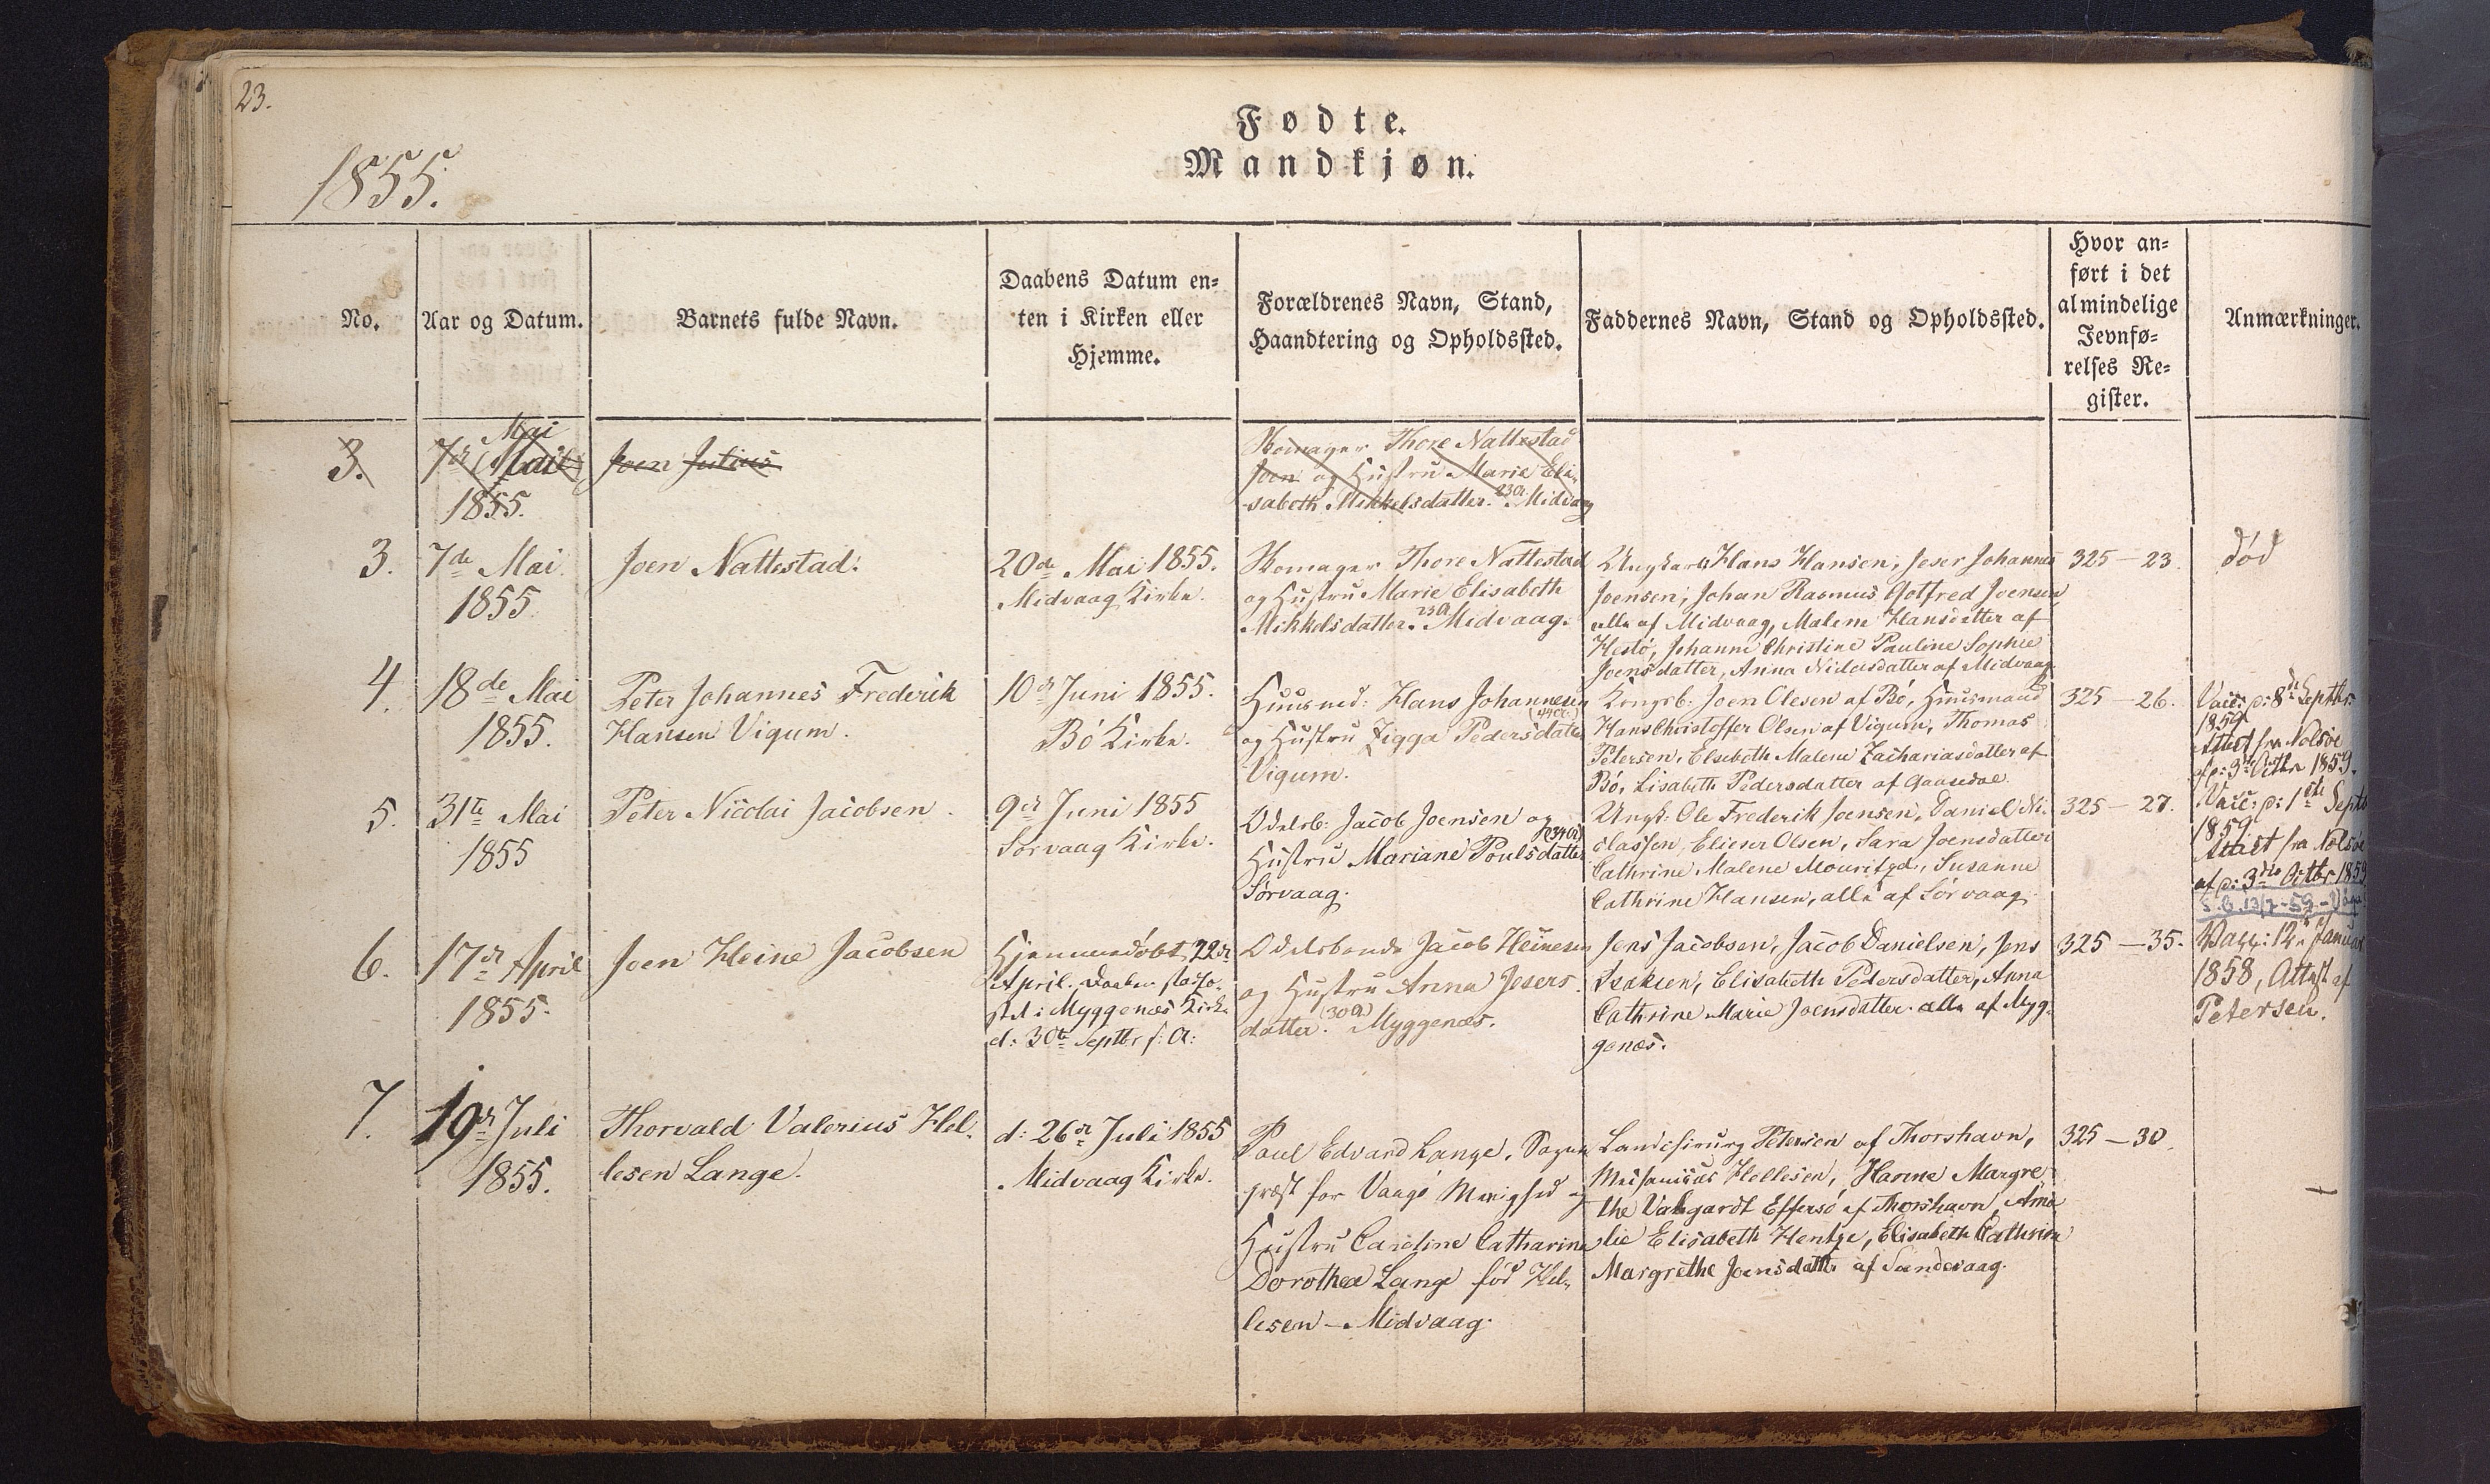 23.
Fødte.
Mandkjøn.
1855.
No.
Aar og Datum.
Barnets fulde Navn.
Daabens Datum en-
ten i Kirken eller
Hjemme.
Forældrenes Navn, Stand,
Haandtering og Opholdssted.
Faddernes Navn, Stand og Opholdssted.
Hvor an-
ført i det
almindelige
Jevnfø-
relses Re-
gister.
Anmærkninger.
3.
7de Mai
1855.
Joen Julius
Skomager Thore Nattestad
Joen og Hustru Marie Eli-
sabeth Mikkelsdatter. 23 A. Midvaag
3.
7de Mai
1855
Joen Nattestad.
20de Mai 1855.
Midvaag Kirke.
Skomager Thore Nattestad
og Hustru Marie Elisabeth
Mikkelsdatter. 23 A Midvaag.
Ungkarle Hans Hansen, Jeser Johannes
Joensen, Johan Rasmus Gotfred Joensen
alle af Midvaag, Malene Hansdatter af
Hestø, Johanne Christine Pauline Sophie
Joensdatter, Anna Niclasdatter af Midvaag.
325 — 23
død
4.
18de Mai
1855.
Peter Johannes Frederik
Hansen Vigum.
10de Juni 1855.
Bø Kirke.
Huusmd: Hans Johannesen
(44 A.)
og Hustru Zigga Pedersdatter
Vigum.
Kongsb: Joen Olesen af Bø, Huusmand
Hans Christoffer Olsen af Vigum, Thomas
Petersen, Elsebeth Malene Zachariasdatter af
Bø, Lisabeth Pedersdatter af Gaasedal
325 — 26.
Vacc: p: 8de Septbr
1859
Attest fra Nolsöe
af p: 3die Octbr 1859.
5.
31te Mai
1855
Peter Nicolai Jacobsen.
9de Juni 1855
Sørvaag Kirke.
Odelsb: Jacob Joensen og
(34 A)
Hustru Mariane Poulsdatter
Sørvaag.
Ungk: Ole Frederik Joensen, Daniel Ni-
classen, Elieser Olsen, Sara Joensdatter
Cathrine Malene Mouritzd., Susanne
Cathrine Hansen, alle af Sørvaag.
325 — 27.
Vacc: p: 1ste Septb
1859
Attest fra Nolsöe
af p: 3die Octbr 1859
6.
17de April
1855.
Joen Heine Jacobsen
Hjemmedøbt 22de
April. Daaben stadfæ-
stet i Myggenæs Kirke
d: 30te Septbr s: A:
Odelsbonde Jacob Heinesen
og Hustru Anna Jesers
datter. (30 A) Myggenæs.
Jens Jacobsen, Jacob Danielsen, Jens
Isaksen, Elisabeth Pedersdatter, Anna
Cathrine Marie Joensdatter alle af Myg-
genæs.
325 — 35.
Vacc: 12te Januar
1858, Attest af
Petersen.
7.
19de Juli
1855.
Thorvald Valerius Hel-
lesen Lange.
d: 26de Juli 1855
Midvaag Kirke.
Paul Edvard Lange, Sogne
præst for Vaagø Menighed og
Hustru Caroline Catharine
Dorothea Lange fød Hel-
lesen — Midvaag.
Landchirurg Petersen af Thorshavn,
Mechanicus Hellesen, Hanne Margre
the Vabgardt Effersø af Thorshavn, Ama
lie Elisabeth Hentze, Elisabeth Cathrine
Margrethe Joensdatter af Sandevaag.
325 — 30